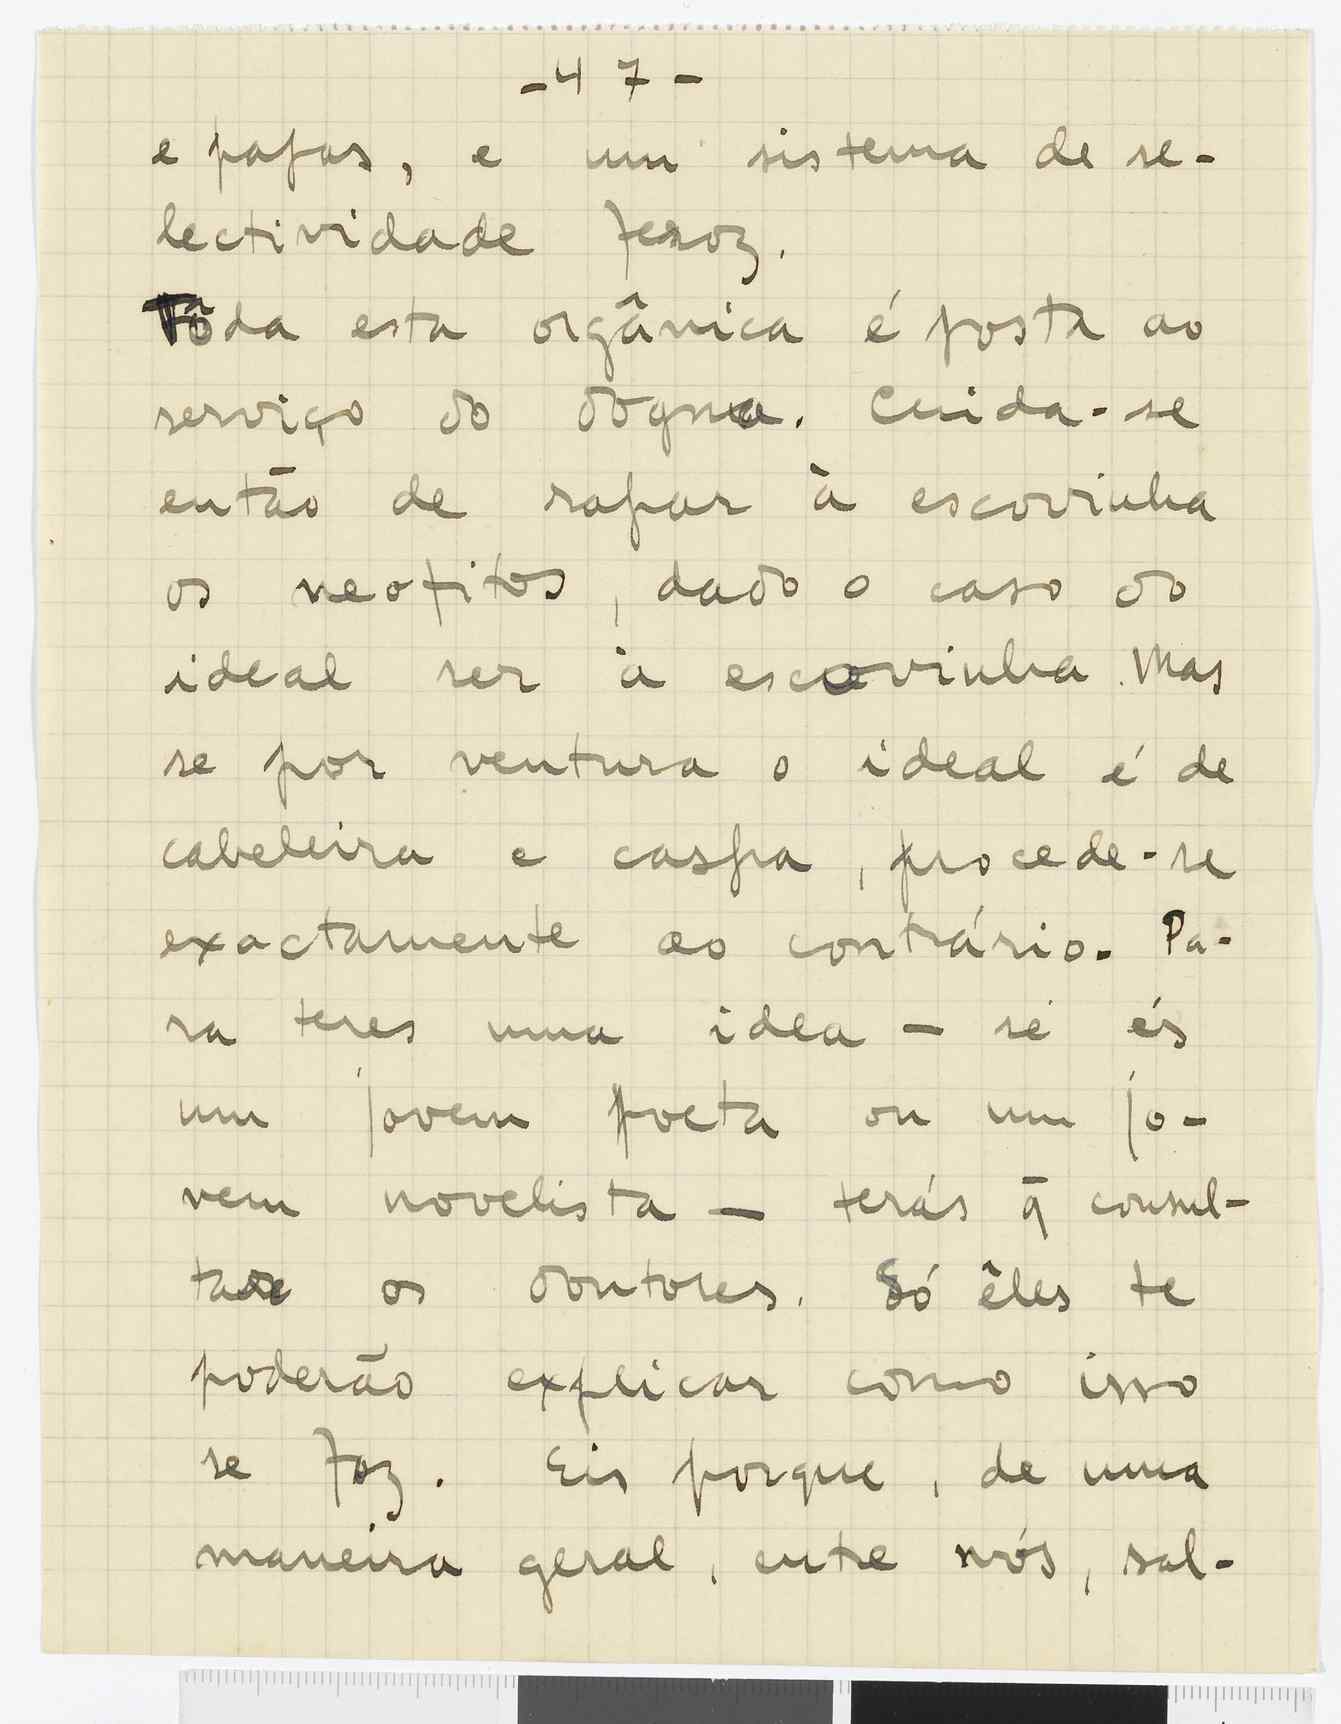 - 4 7 -
e papas, e um sistema de se-
lectividade feroz.
Tôda esta orgânica é posta ao
serviço do dogma. Cuida-se
então de rapar à escovinha
os neofitos, dado o caso do
ideal ser à escovinha. Mas
se por ventura o ideal é de
cabeleira e caspa, procede-se
exactamente ao contrário. Pa-
ra teres uma idea — se és
um jovem poeta ou um jo-
vem novelista — terás q̄ consul-
tar os doutores. Só êles te
poderão explicar como isso
se faz. Eis porque, de uma
maneira geral, entre nós, sal-